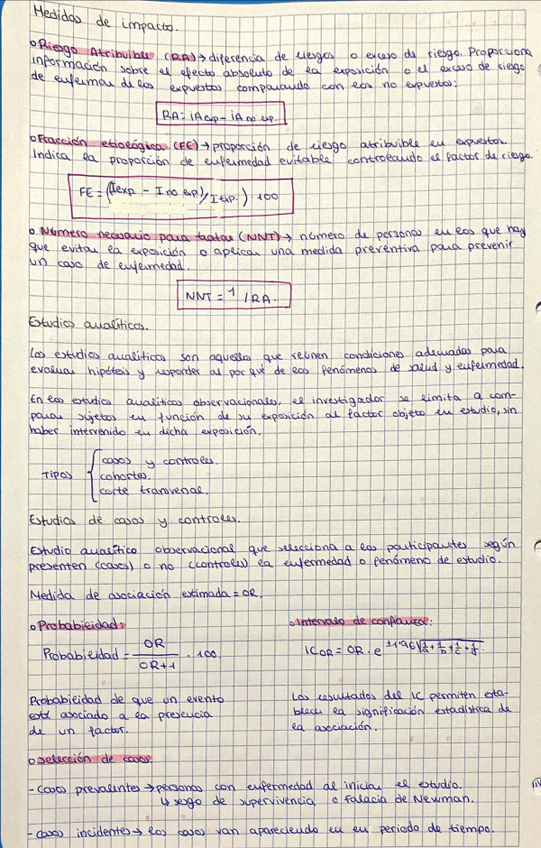 Medidas de impacto.
o Riesgo Atribuible (RA) → diferencia de riesgos o exceso de riesgo. Proporciona
información sobre el efecto absoluto de la exposición o el exceso de riesgo
de enfermar de los expuestos comparando con los no expuestos:
RA = IA exp - IA no exp.
o Fracción etiológica (FE) → proporción de riesgo atribuible en expuestos.
Indica la proporción de enfermedad evitable controlando el factor de riesgo.
FE = (I exp - I no exp) / I exp.) · 100
o Número necesario para tratar (NNT) → número de personas en los que hay
que evitar la exposición o aplicar una medida preventiva para prevenir
un caso de enfermedad.
NNT = 1 / RA.
Estudios analíticos.
Los estudios analíticos son aquellos que reúnen condiciones adecuadas para
evaluar hipótesis y responder al por qué de los fenómenos de salud y enfermedad.
En los estudios analíticos observacionales, el investigador se limita a com-
parar sujetos en función de su exposición al factor objeto en estudio, sin
haber intervenido en dicha exposición.
TIPOS { casos y controles.
cohortes.
corte transversal.
Estudios de casos y controles.
Estudio analítico observacional que selecciona a los participantes según
presenten (casos) o no (controles) la enfermedad o fenómeno de estudio.
Medida de asociación estimada = OR.
o Probabilidad:
Probabilidad = OR / OR+1 · 100.
Probabilidad de que un evento
esté asociado a la presencia
de un factor.
o Intervalo de confianza:
IC OR = OR · e ±1'96√1/a + 1/b + 1/c + 1/d.
Los resultados del IC permiten esta-
blecer la significación estadística de
la asociación.
o Selección de casos
- Casos prevalentes → personas con enfermedad al iniciar el estudio.
↳ sesgo de supervivencia o Falacia de Newman.
- Casos incidentes → los casos van apareciendo en un periodo de tiempo.